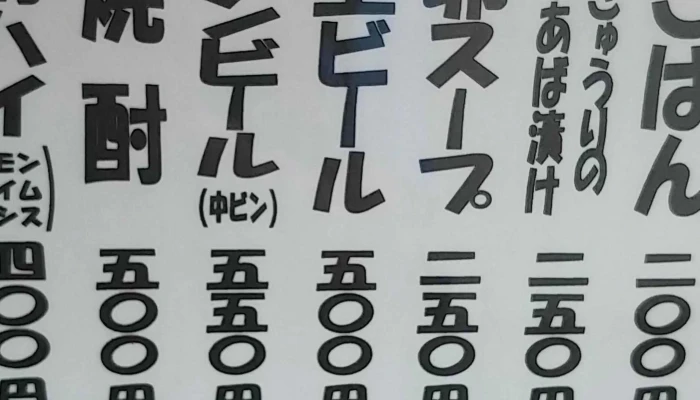 ごはん 二〇〇円
きゅうりの
あば漬け 二五〇円
スープ 二五〇円
ビール 五〇〇円
ンビール(中ビン) 五五〇円
焼酎 五〇〇円
ハイ 四〇〇円
モン
イム
シス